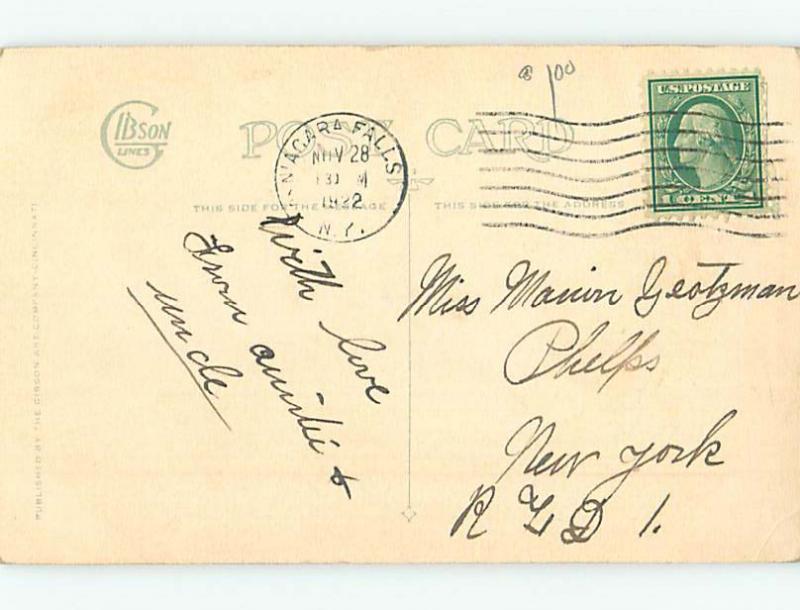 1.00
GIBSON
LINES
POST CARD
NIAGARA FALLS
NOV 28
1922
N.Y.
U.S. POSTAGE
1 CENT
THIS SIDE FOR THE MESSAGE
THIS SIDE FOR THE ADDRESS
With love
From auntie &
uncle
Miss Marion Geotzman
Phelps
New York
R F D 1.
PUBLISHED BY THE GIBSON ART COMPANY, CINCINNATI